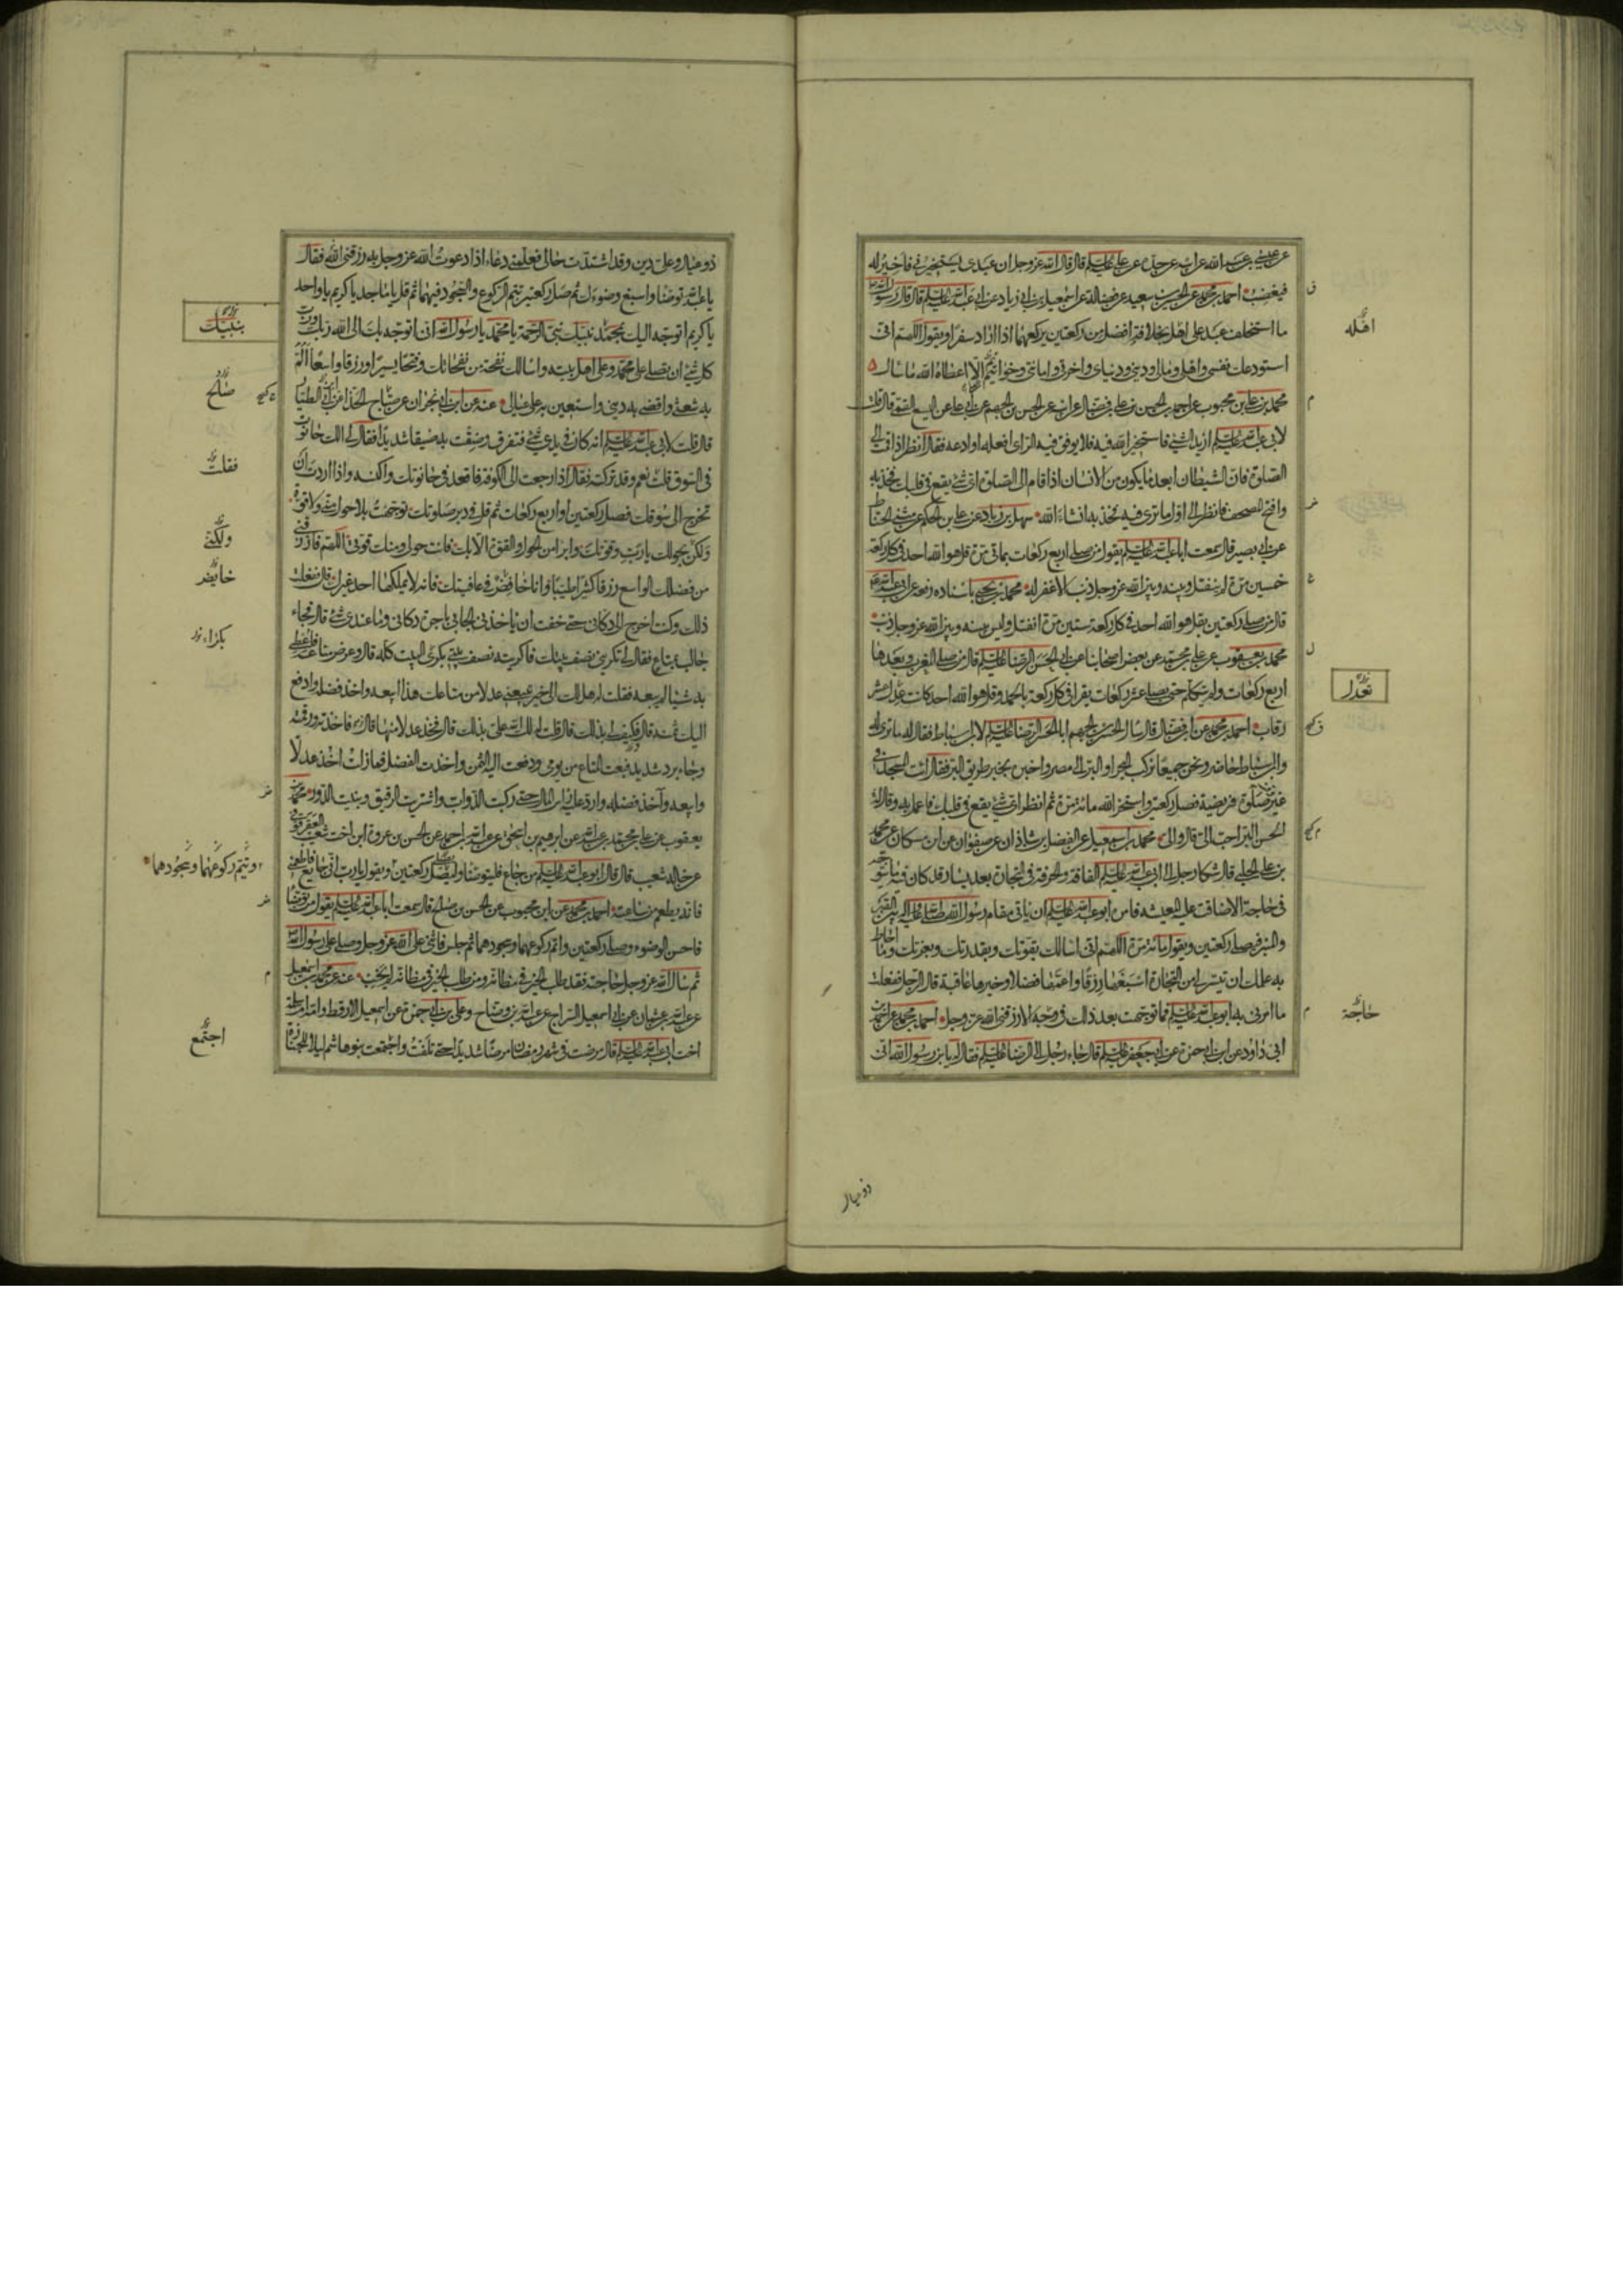 عن عيسى بن عبد الله عن ابيه عن جده عن علي عليه السلام قال قال الله عز وجل ان عبدي يستخيرني فاخير له
فيغضب احمد بن محمد عن الحسين بن سعيد عن فضالة عن اسمعيل بن ابي زياد عن ابي عبد الله عليه السلام قال قال رسول الله ص
ما استخلف عبد على اهله بخلافة افضل من ركعتين يركعهما اذا اراد سفرا ويقول اللهم اني
استودعك نفسي واهلي ومالي وديني ودنياي واخرتي وامانتي وخواتيم الا اعطاه الله ما سال
محمد بن علي بن محبوب عن احمد بن الحسن بن علي بن فضال عن ابيه عن الحسن بن الجهم عن ابي علي عن اليسع القمي قال قلت
لابي عبد الله عليه السلام اريد الشئ فاستخير الله فيه فلا يوفق فيه الراى افعله او ادعه فقال انظر اذا قمت الى
الصلوة فان الشيطان ابعد ما يكون من الانسان اذا قام الى الصلوة اى شئ يقع في قلبك فخذ به
وافتح المصحف فانظر الى اول ما ترى فيه فخذ به انشاء الله سهل بن زياد عن علي بن الحكم عن مثنى الحناط
عن ابي بصير قال سمعت ابا عبد الله عليه السلام يقول من صلى اربع ركعات بماتى مرة قل هو الله احد في كل ركعة
خمسين مرة لم ينفتل وبينه وبين الله عز وجل ذنب الا غفر له محمد بن يحيى باسناده رفعه عن ابي عبد الله ع
قال من صلى ركعتين بقل هو الله احد في كل ركعة ستين مرة انفتل وليس بينه وبين الله عز وجل ذنب
محمد بن يعقوب عن علي بن محمد عن بعض اصحابنا عن ابي الحسن الرضا عليه السلام قال من صلى المغرب وبعدها
اربع ركعات ولم يتكلم حتى يصلى عشر ركعات يقرا في كل ركعة بالحمد وقل هو الله احد كانت عدل عشر
رقاب احمد بن محمد عن ابن فضال قال سال الحسن بن الجهم ابا الحسن الرضا عليه السلام لابن اسباط فقال له ما ترى له
وابن اسباط حاضر ونحن جميعا نركب البحر او البر الى مصر واخبره بخبر طريق البر فقال ائت المسجد في
غير صلوة فريضة فصل ركعتين واستخر الله مائة مرة ثم انظر اى شئ يقع في قلبك فاعمل به وقال له
الحسن البر احب الى قال والى محمد بن اسمعيل عن الفضل بن شاذان عن صفوان عن ابن مسكان عن محمد
بن علي الحلبي قال شكا رجل الى ابي عبد الله عليه السلام الفاقة والحرفة في التجارة بعد يسار قد كان فيه ما يتوجه
في حاجة الا ضاقت عليه المعيشة فامره ابو عبد الله عليه السلام ان ياتي مقام رسول الله صلى الله عليه واله بين القبر
والمنبر فيصلى ركعتين ويقول مائة مرة اللهم اني اسالك بقوتك وبقدرتك وبعزتك وما احاط
به علمك ان تيسر لي من التجارة اسبغها رزقا واعمها فضلا وخيرها عاقبة قال الرجل ففعلت
ما امرني به ابو عبد الله عليه السلام فما توجهت بعد ذلك في وجه الا رزقني الله عز وجل احمد بن محمد عن احمد بن
ابي داود عن ابن ابي حمزة عن ابي جعفر عليه السلام قال جاء رجل الى الرضا عليه السلام فقال له يا بن رسول الله اني
اهله
تعدل
حاجة
ذو عيال
ذو عيال وعلى دين وقد اشتدت حالي فعلمني دعاء اذا دعوت الله عز وجل به رزقني الله فقال
يا عبد الله توضا واسبغ وضوءك ثم صل ركعتين تتم الركوع والسجود فيهما ثم قل يا ماجد يا كريم يا واحد
يا كريم اتوجه اليك بمحمد نبيك نبي الرحمة يا محمد يا رسول الله اني اتوجه بك الى الله ربك ورب
كل شئ ان تصلى على محمد وعلى اهل بيته واسالك نفحة من نفحاتك وفتحا يسيرا ورزقا واسعا الم
به شعثي واقضى به ديني واستعين به على عيالي عنه عن ابن ابي نجران عن صباح الحذاء عن ابن الطيار
قال قلت لابي عبد الله عليه السلام انه كان في يدى شئ فتفرق وضقت به ضيقا شديدا فقال لي الك حانوت
في السوق قلت نعم وقد تركته فقال اذا رجعت الى الكوفة فاقعد في حانوتك واكنسه واذا اردت ان
تخرج الى سوقك فصل ركعتين او اربع ركعات ثم قل في دبر صلوتك توجهت بلا حول مني ولا قوة
ولكن بحولك يا رب وقوتك وابرا من الحول والقوة الا بك فانت حولي ومنك قوتي اللهم فارزقني
من فضلك الواسع رزقا كثيرا طيبا وانا خافض في عافيتك فانه لا يملكها احد غيرك قال ففعلت
ذلك وكنت اخرج الى دكاني حتى خفت ان ياخذني الجابي باجرة دكاني وما عندى شئ قال فجاء
جالب بمتاع فقال لي تكريني نصف بيتك فاكريته نصف بيتي بكرى البيت كله قال وعرض متاعه فاعطى
به شيئا لم يبعه فقلت له هل لك الى خير تبيعني عدلا من متاعك هذا ابيعه واخذ فضله وادفع
اليك ثمنه قال فكيف لي بذلك قال قلت لك الله على بذلك قال فخذ عدلا منها قال فاخذته ورقمته
وجاء برد شديد فبعت المتاع من يومي ودفعت اليه الثمن واخذت الفضل فما زلت اخذ عدلا
وابيعه وآخذ فضله وارد عليه راس المال حتى ركبت الدواب واشتريت الرقيق وبنيت الدور محمد بن
يعقوب عن علي بن محمد بن عبد الله عن ابراهيم بن اسحق عن عبد الله بن احمد عن الحسن بن عروة ابن اخت شعيب العقرقوفي
عن خاله شعيب قال قال ابو عبد الله عليه السلام من جاع فليتوضا وليصل ركعتين ويقول يا رب اني جايع فاطعمني
فانه يطعم من ساعته احمد بن محمد عن ابن محبوب عن الحسن بن صالح قال سمعت ابا عبد الله عليه السلام يقول من توضا
فاحسن الوضوء وصلى ركعتين واتم ركوعهما وسجودهما ثم جلس فاثنى على الله عز وجل وصلى على رسول الله ص
ثم سال الله عز وجل حاجته فقد طلب الخير في مظانه ومن طلب الخير في مظانه لم يخب عنه عن محمد بن اسمعيل
عن عبد الله بن عثمان عن ابي اسمعيل السراج عن عبد الله بن وضاح وعلي بن ابي حمزة عن اسمعيل الارقط وامه ام سلمة
اخت ابي عبد الله عليه السلام قال مرضت في شهر رمضان مرضا شديدا حتى تلفت واجتمعت بنو هاشم ليلا للجنازة
بنبيك
صالح
فقلت
ولكني
خايض
بكراء
وتيتم ركوعهما وسجودهما
اجتمع